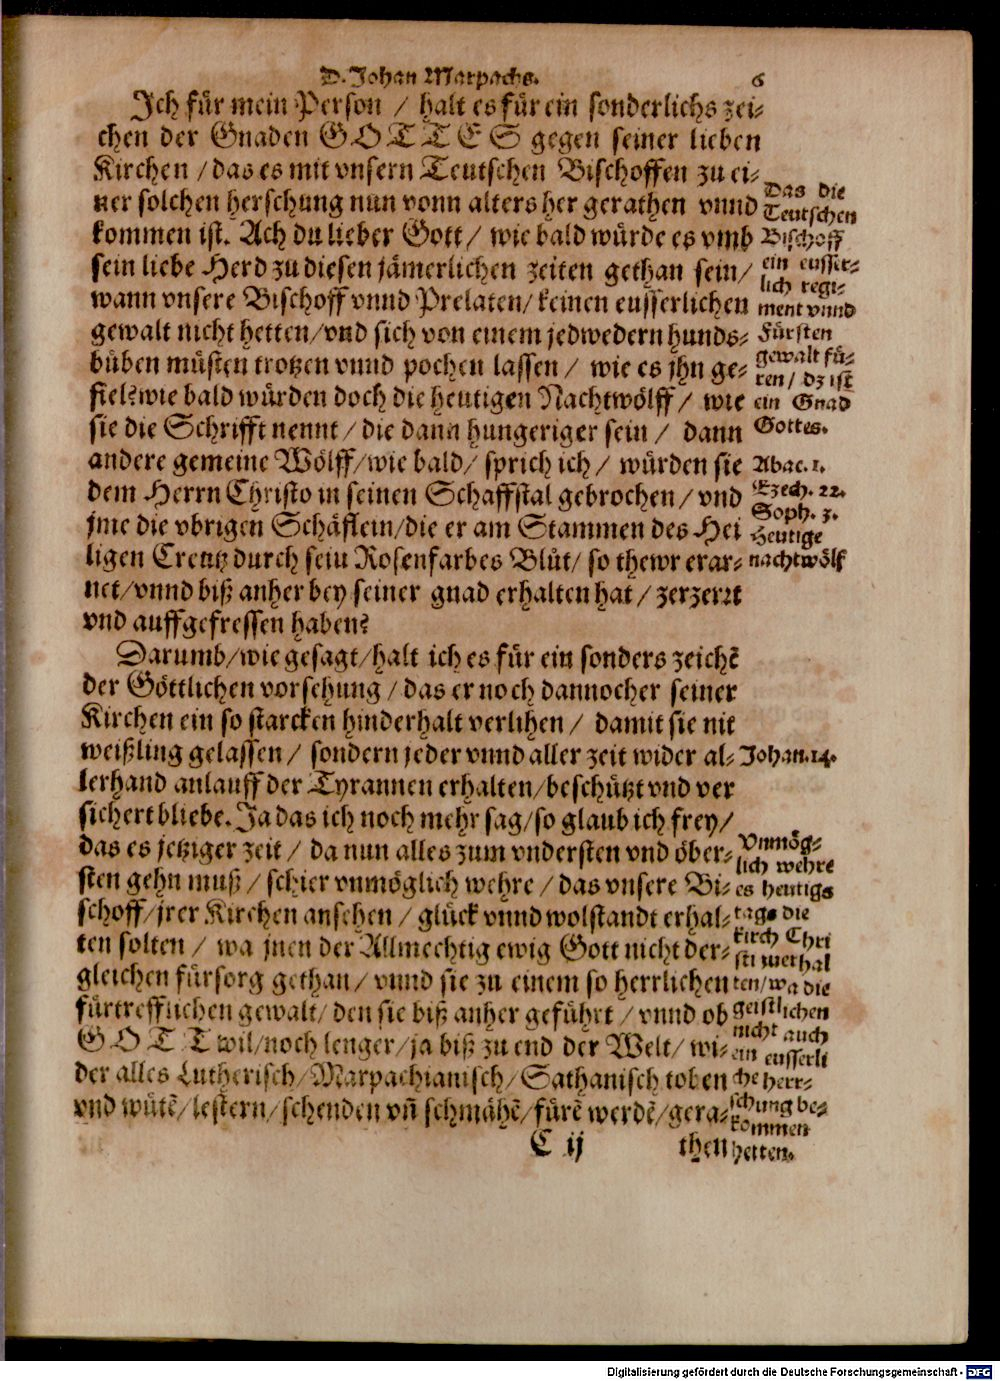 D. Johan Marpachs. 6
Ich für mein Person / halt es für ein sonderlichs zei-
chen der Gnaden GOTTES gegen seiner lieben
Kirchen / das es mit vnsern Teutschen Bischoffen zu ei-
ner solchen herschung nun vonn alters her gerathen vnnd
kommen ist. Ach du lieber Gott / wie bald würde es vmb
sein liebe Herd zu diesen jämerlichen zeiten gethan sein /
wann vnsere Bischoff vnnd Prelaten / keinen eusserlichen
gewalt nicht hetten / vnd sich von einem jedwedern hunds-
büben müsten trotzen vnnd pochen lassen / wie es jhn ge-
fiel? wie bald würden doch die heutigen Nachtwölff / wie
sie die Schrifft nennt / die dann hungeriger sein / dann
andere gemeine Wölff / wie bald / sprich ich / würden sie
dem Herrn Christo in seinen Schaffstal gebrochen / vnd
jme die vbrigen Schäflein / die er am Stammen des Hei
ligen Creutz durch sein Rosenfarbes Blůt / so thewr erar-
net / vnnd biß anher bey seiner gnad erhalten hat / zerzerrt
vnd auffgefressen haben?
Das die
Teutschen
Bischoff
ein eusser-
lich regi-
ment vnnd
Fürsten
gewalt fü-
ren / dz ist
ein Gnad
Gottes.
Abac. 1.
Ezech. 22.
Soph. 3.
Heutige
nachtwölf
Darumb / wie gesagt / halt ich es für ein sonders zeichē
der Göttlichen vorsehung / das er noch dannocher seiner
Kirchen ein so starcken hinderhalt verlihen / damit sie nit
weißling gelassen / sondern jeder vnnd aller zeit wider al-
lerhand anlauff der Tyrannen erhalten / beschützt vnd ver
sichert bliebe. Ja das ich noch mehr sag / so glaub ich frey /
das es jetziger zeit / da nun alles zum vndersten vnd öber-
sten gehn muß / schier vnmöglich wehre / das vnsere Bi-
schoff / jrer Kirchen ansehen / glück vnnd wolstandt erhal-
ten solten / wa jnen der Allmechtig ewig Gott nicht der-
gleichen fürsorg gethan / vnnd sie zu einem so herrlichen
fürtrefflichen gewalt / den sie biß anher geführt / vnnd ob
GOTT wil / noch lenger / ja biß zu end der Welt / wi-
der alles Lutherisch / Marpachianisch / Sathanisch toben
vnd wütē / lestern / schenden vñ schmähē / fürē werdē / gera-
Johan. 14.
Vnmög-
lich wehre
es heutigs
tags die
kirch Chri
sti zuerhal
ten / wa die
geistlichen
nicht auch
ein eusserli
che herr-
schung be-
kommen
hetten.
C ij then
Digitalisierung gefördert durch die Deutsche Forschungsgemeinschaft - DFG